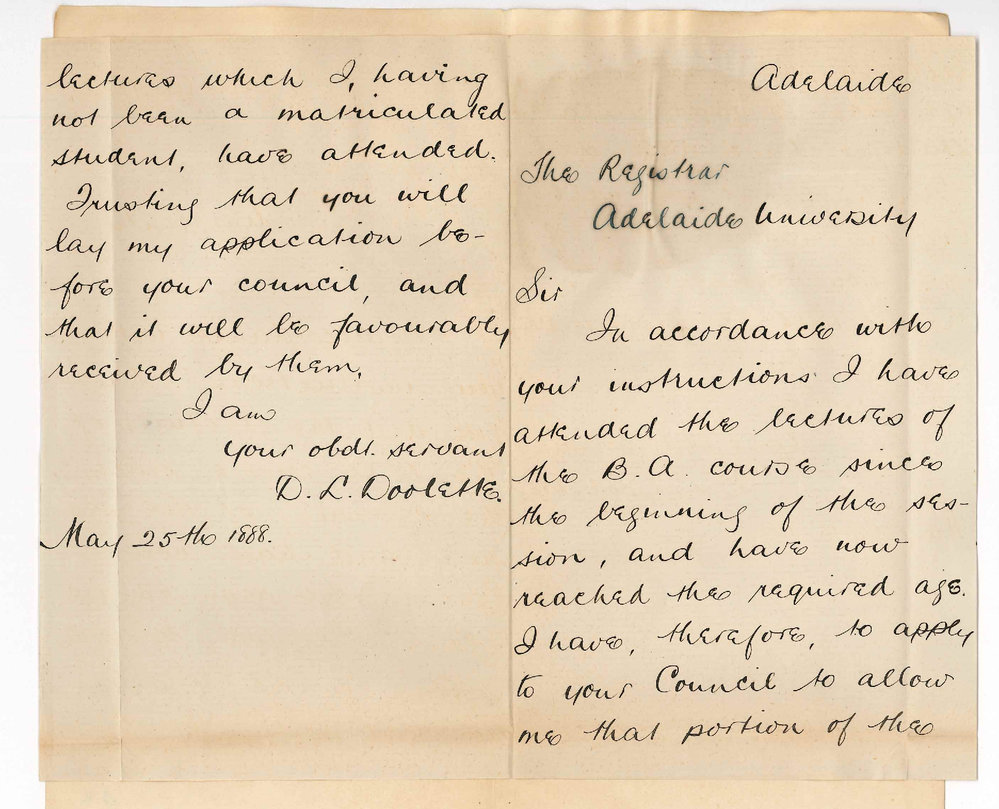 Adelaide
The Registrar
Adelaide University
Sir
In accordance with
your instructions I have
attended the lectures of
the B.A. course since
the beginning of the ses-
sion, and have now
reached the required age.
I have, therefore, to apply
to your Council to allow
me that portion of the
lectures which I, having
not been a matriculated
student, have attended.
Trusting that you will
lay my application be-
fore your council, and
that it will be favourably
received by them,
I am
your obdt. servant
D. L. Doolette.
May 25th 1888.